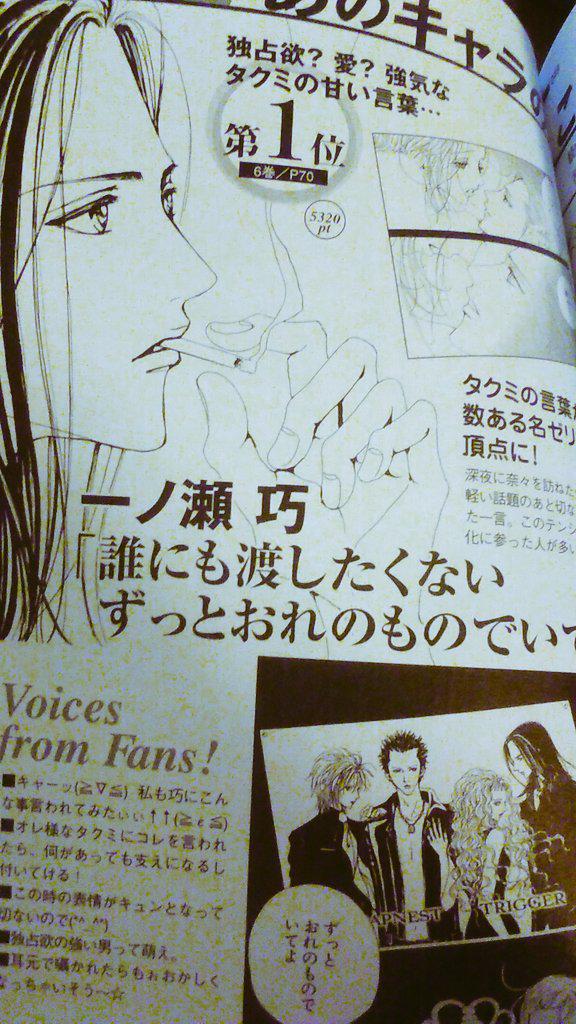 あのキャラ
独占欲? 愛? 強気な
タクミの甘い言葉…
第1位
6巻/P70
5320
pt
タクミの言葉
数ある名ゼリ
頂点に!
深夜に奈々を訪ねた
軽い話題のあと切な
た一言。このテンシ
化に参った人が多い
一ノ瀬 巧
「誰にも渡したくない
ずっとおれのものでいて
Voices
from Fans!
■キャーッ(≧∇≦) 私も巧にこん
な事言われてみたいぃ↑↑(≧ε≦)
■オレ様なタクミにコレを言われ
たら、何があっても支えになるし
付いてける!
■この時の表情がキュンとなって
切ないので(*^_^*)
■独占欲の強い男って萌え。
■耳元で囁かれたらもぉおかしく
なっちゃいそう〜☆
APNEST
TRIGGER
ずっと
おれのもので
いてよ